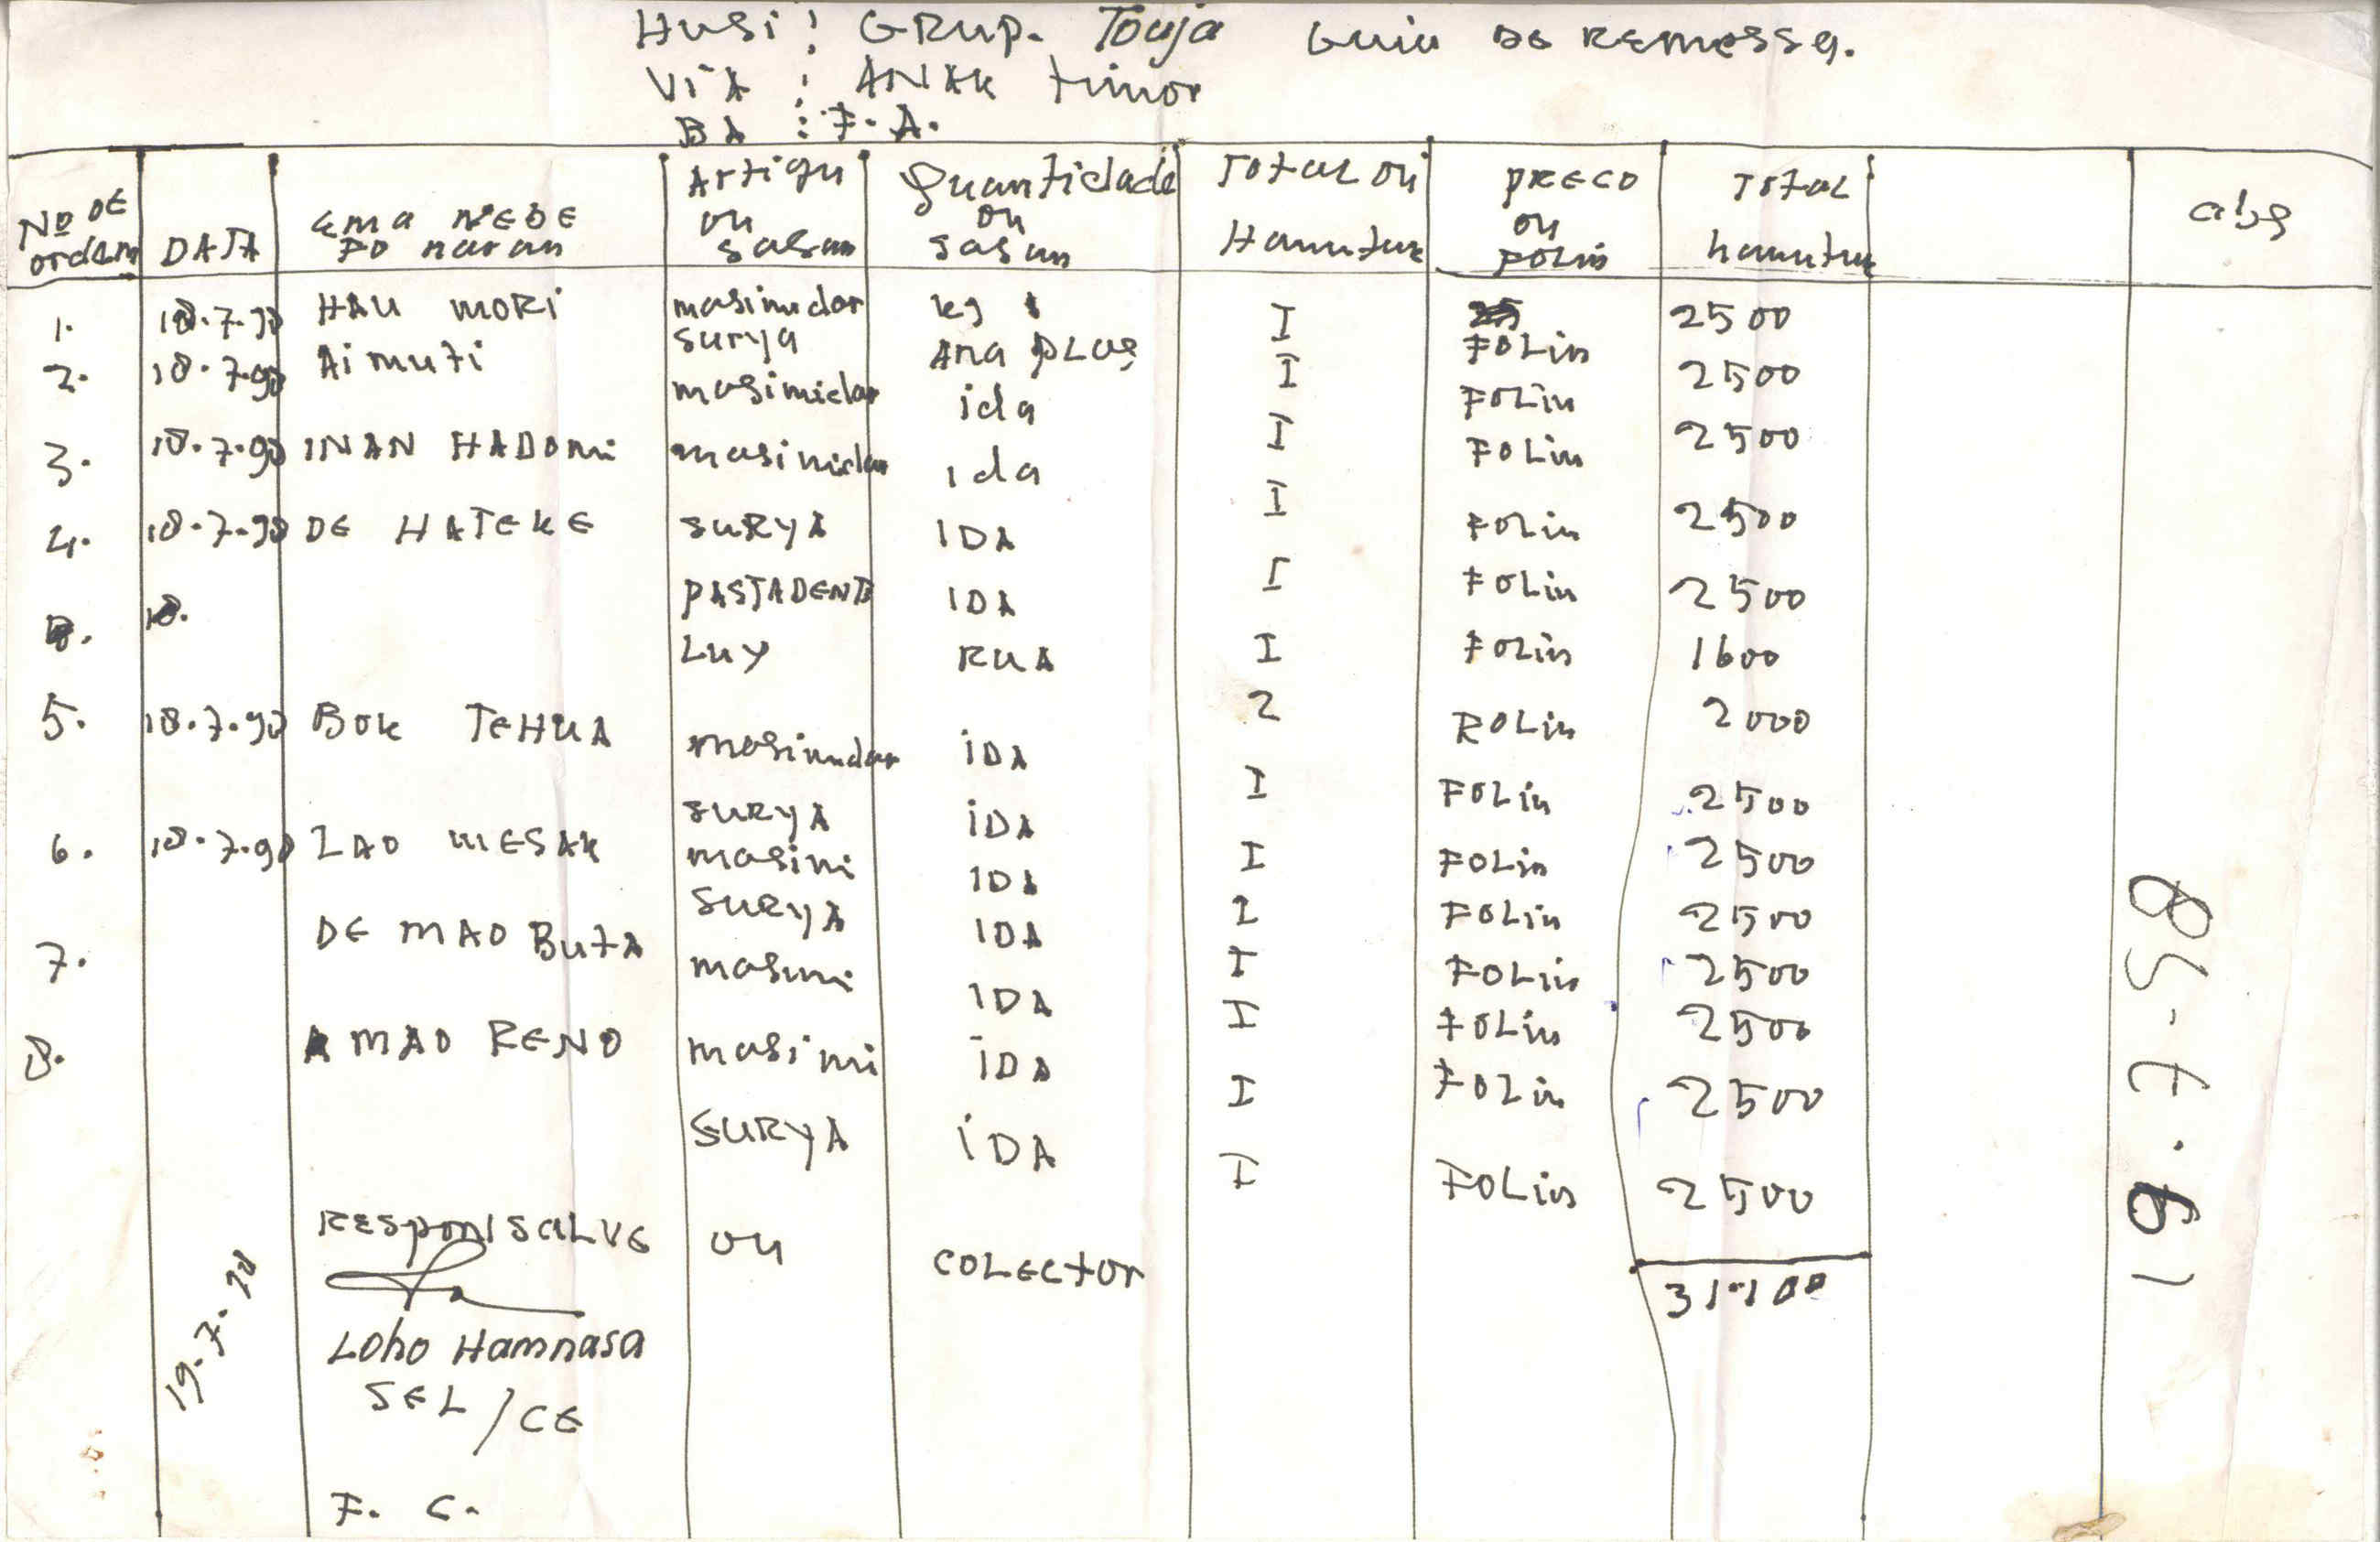 Husi : GRUP. Touja Guia DE Remessa.
ViA : ANAK timor
BA : F. A.
Nº DE ordem
DATA
Ema NEBE FO naran
Artigu ou sasan
Quantidade ou sasan
Total ou Hamutuk
PRECO ou FOLin
Total hamutuk
abs
1. 18.7.98 HAU MORi masimidar kg 1 I 2500
surya Ana PLUS FOLin
2. 18.7.98 Aimuti masimidar ida I FOLin 2500
3. 18.7.98 INAN HADOMi masimidar ida I FOLin 2500
4. 18.7.98 DE HATEKE SURYA IDA I FOLin 2500
18. PASTADENTE IDA I FOLin 2500
LUY RUA I FOLin 1600
5. 18.7.98 BOK TEHUA 2 ROLin 2000
masimidar iDA I FOLin 2500
SURYA iDA
6. 18.7.98 LAO MESAK masimi IDA I FOLin 2500
SURYA IDA I FOLin 2500
7. DE MAO BUTA masimi IDA I FOLin 2500
I FOLin 2500
8. A MAO RENO masimi iDA I FOLin 2500
SURYA iDA I FOLin 2500
RESPONSALVE ou COLECTOR
31.100
LOho Hamnasa
SEL / CE
F. C.
19.7.98
19.7-98